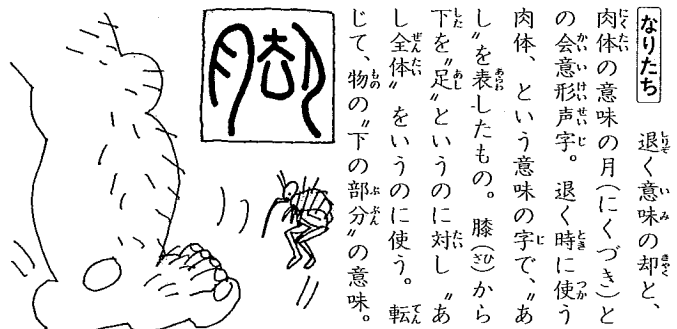 なりたち　退く意味の却と、
肉体の意味の月(にくづき)と
の会意形声字。退く時に使う
肉体、という意味の字で、〝あ
し〟を表したもの。膝(ひざ)から
下を〝足〟というのに対し〝あ
し全体〟をいうのに使う。転
じて、物の〝下の部分〟の意味。
脚